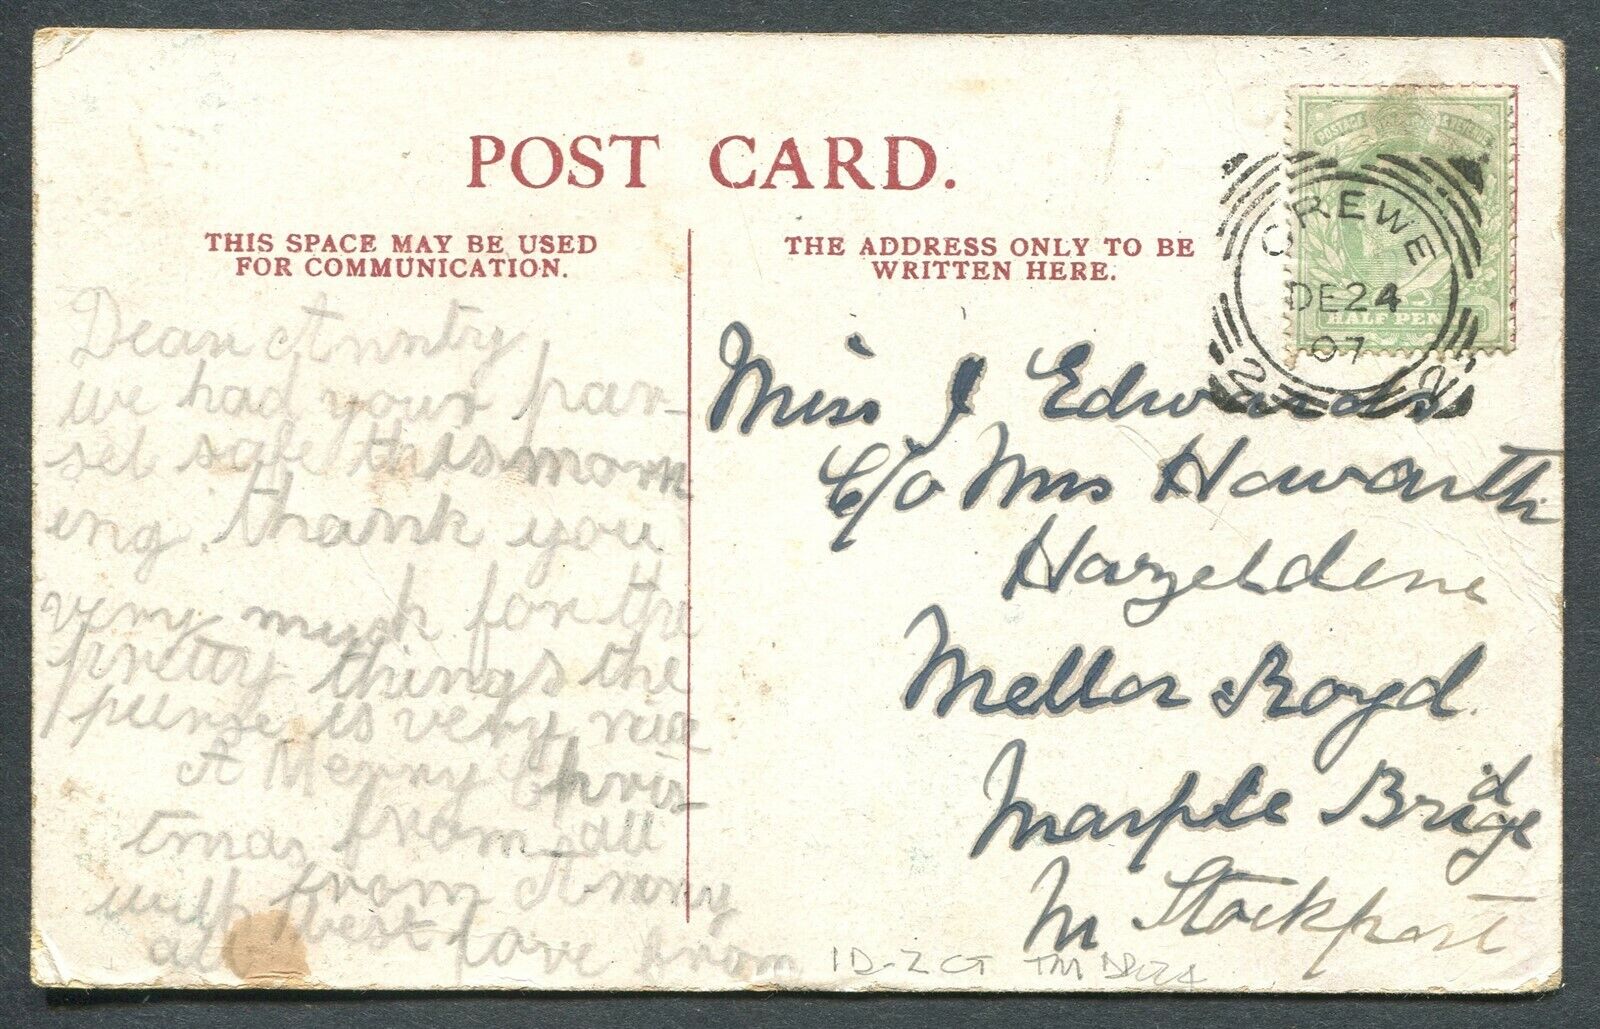 POST CARD.
THIS SPACE MAY BE USED
FOR COMMUNICATION.
THE ADDRESS ONLY TO BE
WRITTEN HERE.
POSTAGE & REVENUE
HALF PEN
CREWE
DE 24
07
2
Dear Annty
we had your par-
sel safe this morn
ing. thank you
very much for the
pretty things the
purse is very nice
A Merry Chris-
tmas from all
from Anny
with best love from
all
Miss J Edwards
C/o Mrs Howarth
Hazeldene
Mellor Royd.
Marple Bridge
Nr Stockport
1D-2 CT TM